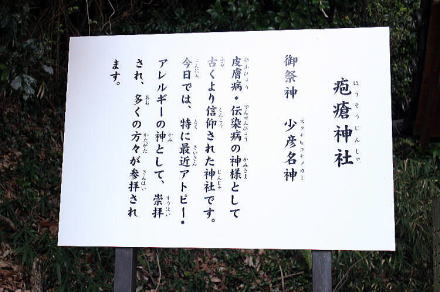 疱瘡神社
御祭神　少彦名神
皮膚病・伝染病の神様として
古くより信仰された神社です。
今日では、特に最近アトピー・
アレルギーの神として、崇拝
され、多くの方々が参拝され
ます。